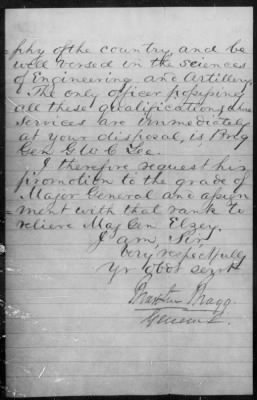 phy of the country, and be
well versed in the Sciences
of Engineering and Artillery.
The only officer possessing
all these qualifications, whose
services are immediately
at your disposal, is Brig
Gen G W C Lee.
I therefore request his
promotion to the grade of
Major General and assign
ment with that rank to
relieve Maj Gen Elzey.
I am, Sir,
Very respectfully
Yr obdt servt
Braxton Bragg
General